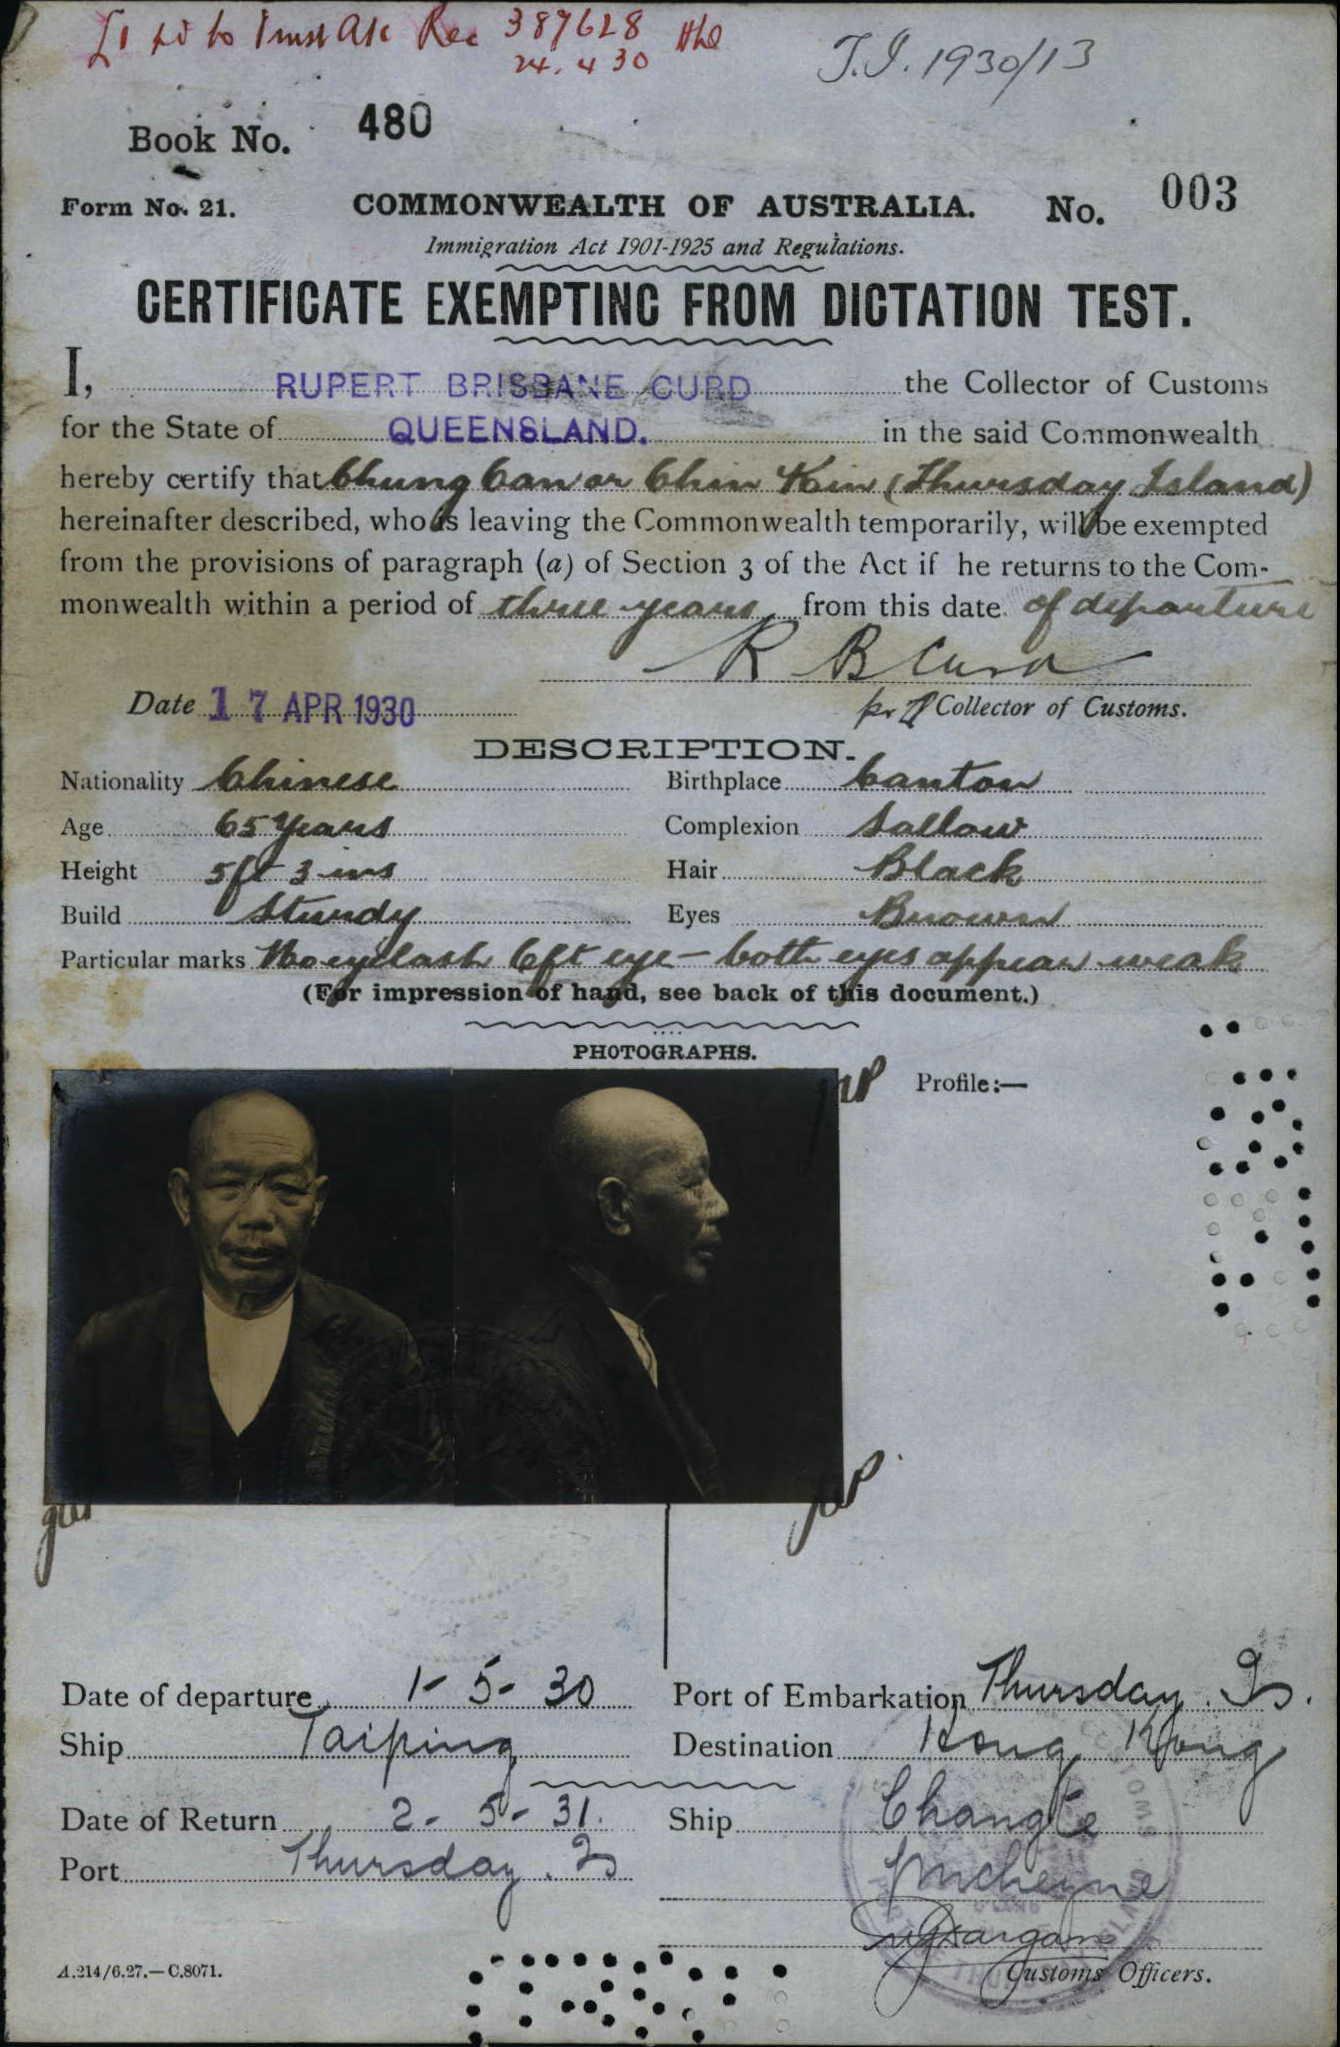 £1 pd to Trust a/c Rec 387628
24. 4 30
T.I. 1930/13
Book No. 480
Form No. 21. COMMONWEALTH OF AUSTRALIA. No. 003
Immigration Act 1901-1925 and Regulations.
CERTIFICATE EXEMPTING FROM DICTATION TEST.
I, RUPERT BRISBANE CURD the Collector of Customs
for the State of QUEENSLAND. in the said Commonwealth
hereby certify that Chung Can or Chin Kin (Thursday Island)
hereinafter described, who is leaving the Commonwealth temporarily, will be exempted
from the provisions of paragraph (a) of Section 3 of the Act if he returns to the Com-
monwealth within a period of three years from this date of departure
R B Curd
Date 17 APR 1930 Collector of Customs.
DESCRIPTION.
Nationality Chinese Birthplace Canton
Age 65 Years Complexion Sallow
Height 5ft 3 ins Hair Black
Build Sturdy Eyes Brown
Particular marks No eyelash left eye - both eyes appear weak
(For impression of hand, see back of this document.)
PHOTOGRAPHS.
Profile:—
Date of departure 1-5-30 Port of Embarkation Thursday Is.
Ship Taiping Destination Hong Kong
Date of Return 2-5-31. Ship Changte
Port Thursday. Is
Customs Officers.
A.214/6.27.—C.8071.